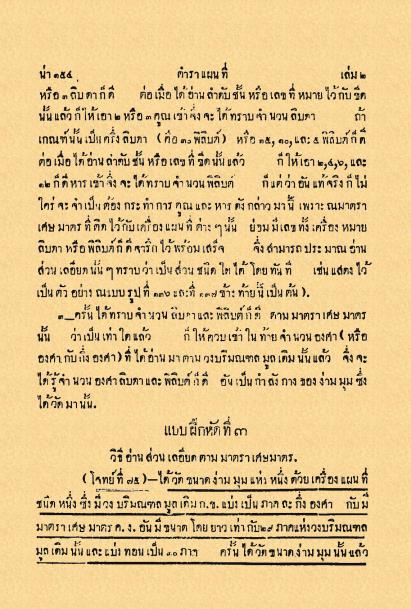 น่า ๑๕๔ ตำราแผนที่ เล่ม ๒
หรือ ๓ ลิบดาก็ดี ต่อเมื่อได้อ่านลำดับชั้น หรือเลขที่หมายไว้กับขีด
นั้นแล้ว ก็ให้เอา ๒ หรือ ๓ คูณเข้า จึ่งจะได้ทราบจำนวนลิบดา ถ้า
เกณฑ์นั้นเป็นครึ่งลิบดา (คือ ๓๐ พิลิบด์) หรือ ๑๕, ๑๐, และ ๕ พิลิบด์ก็ดี
ต่อเมื่อได้อ่านลำดับชั้น หรือเลขที่ขีดนั้นแล้ว ก็ให้เอา ๒,๔,๖, และ
๑๒ ก็ดีหารเข้า จึ่งจะได้ทราบจำนวนพิลิบด์ ก็แต่ว่าอันแท้จริงก็ไม่
ใคร่จะจำเป็นต้องกระทำการคูณและหารดังกล่าวมานี้ เพราะณมาตรา
เศษมาตรที่ติดไว้กับเครื่องแผนที่ต่าง ๆ นั้น ย่อมมีเลขทั้งเครื่องหมาย
ลิบดา หรือพิลิบด์ก็ดีจาริกไว้พร้อมเสร็จ จึ่งสามารถประมาณอ่าน
ส่วนเลอียดนั้น ๆ ทราบว่าเป็นส่วนชนิดใดได้โดยทันที เช่นแสดงไว้
เป็นตัวอย่างณแบบรูปที่ ๑๓๖ และที่ ๑๓๗ ข้างท้ายนี้เป็นต้น).
๓_ครั้นได้ทราบจำนวนลิบดาและพิลิบด์ก็ดี ตามมาตราเศษมาตร
นั้น ว่าเป็นเท่าใดแล้ว ก็ให้ควบเข้าในท้ายจำนวนองศา (หรือ
องศากับกึ่งองศา) ที่ได้อ่านมาตามวงบริมณฑลมูลเดิมนั้นแล้ว จึ่งจะ
ได้รู้จำนวนองศาลิบดาและพิลิบด์ก็ดี อันเป็นกำลังกางของง่ามมุมซึ่ง
ได้วัดมานั้น.
แบบฝึกหัดที่ ๓
วิธีอ่านส่วนเลอียดตามมาตราเศษมาตร.
(โจทย์ที่ ๗๕)—ได้วัดขนาดง่ามมุมแห่งหนึ่งด้วยเครื่องแผนที่
ชนิดหนึ่งซึ่งมีวงบริมณฑลมูลเดิม ก.ข. แบ่งเป็นภาคละกึ่งองศา กับมี
มาตราเศษมาตร ค. ง. อันมีขนาดโดยยาวเท่ากับ ๒๙ ภาคแห่งวงบริมณฑล
มูลเดิมนั้นและแบ่งทอนเป็น ๓๐ ภาค ครั้นได้วัดขนาดง่ามมุมนั้นแล้ว